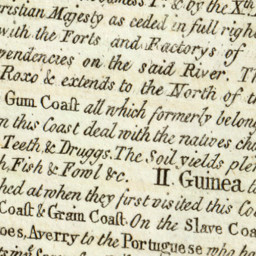 & by the Xth
Christian Majesty as ceded in full right
with the Forts and Factorys of
dependencies on the said River. The
Roxo & extends to the North of th
Gum Coast all which formerly belong
n this Coast deal with the natives ch
Teeth & Druggs. The Soil yields plen
h, Fish & Fowl &c. II. Guinea
hed at when they first visited this Co
Coast & Grain Coast. On the Slave Coa
oes, Averry to the Portuguese who ha